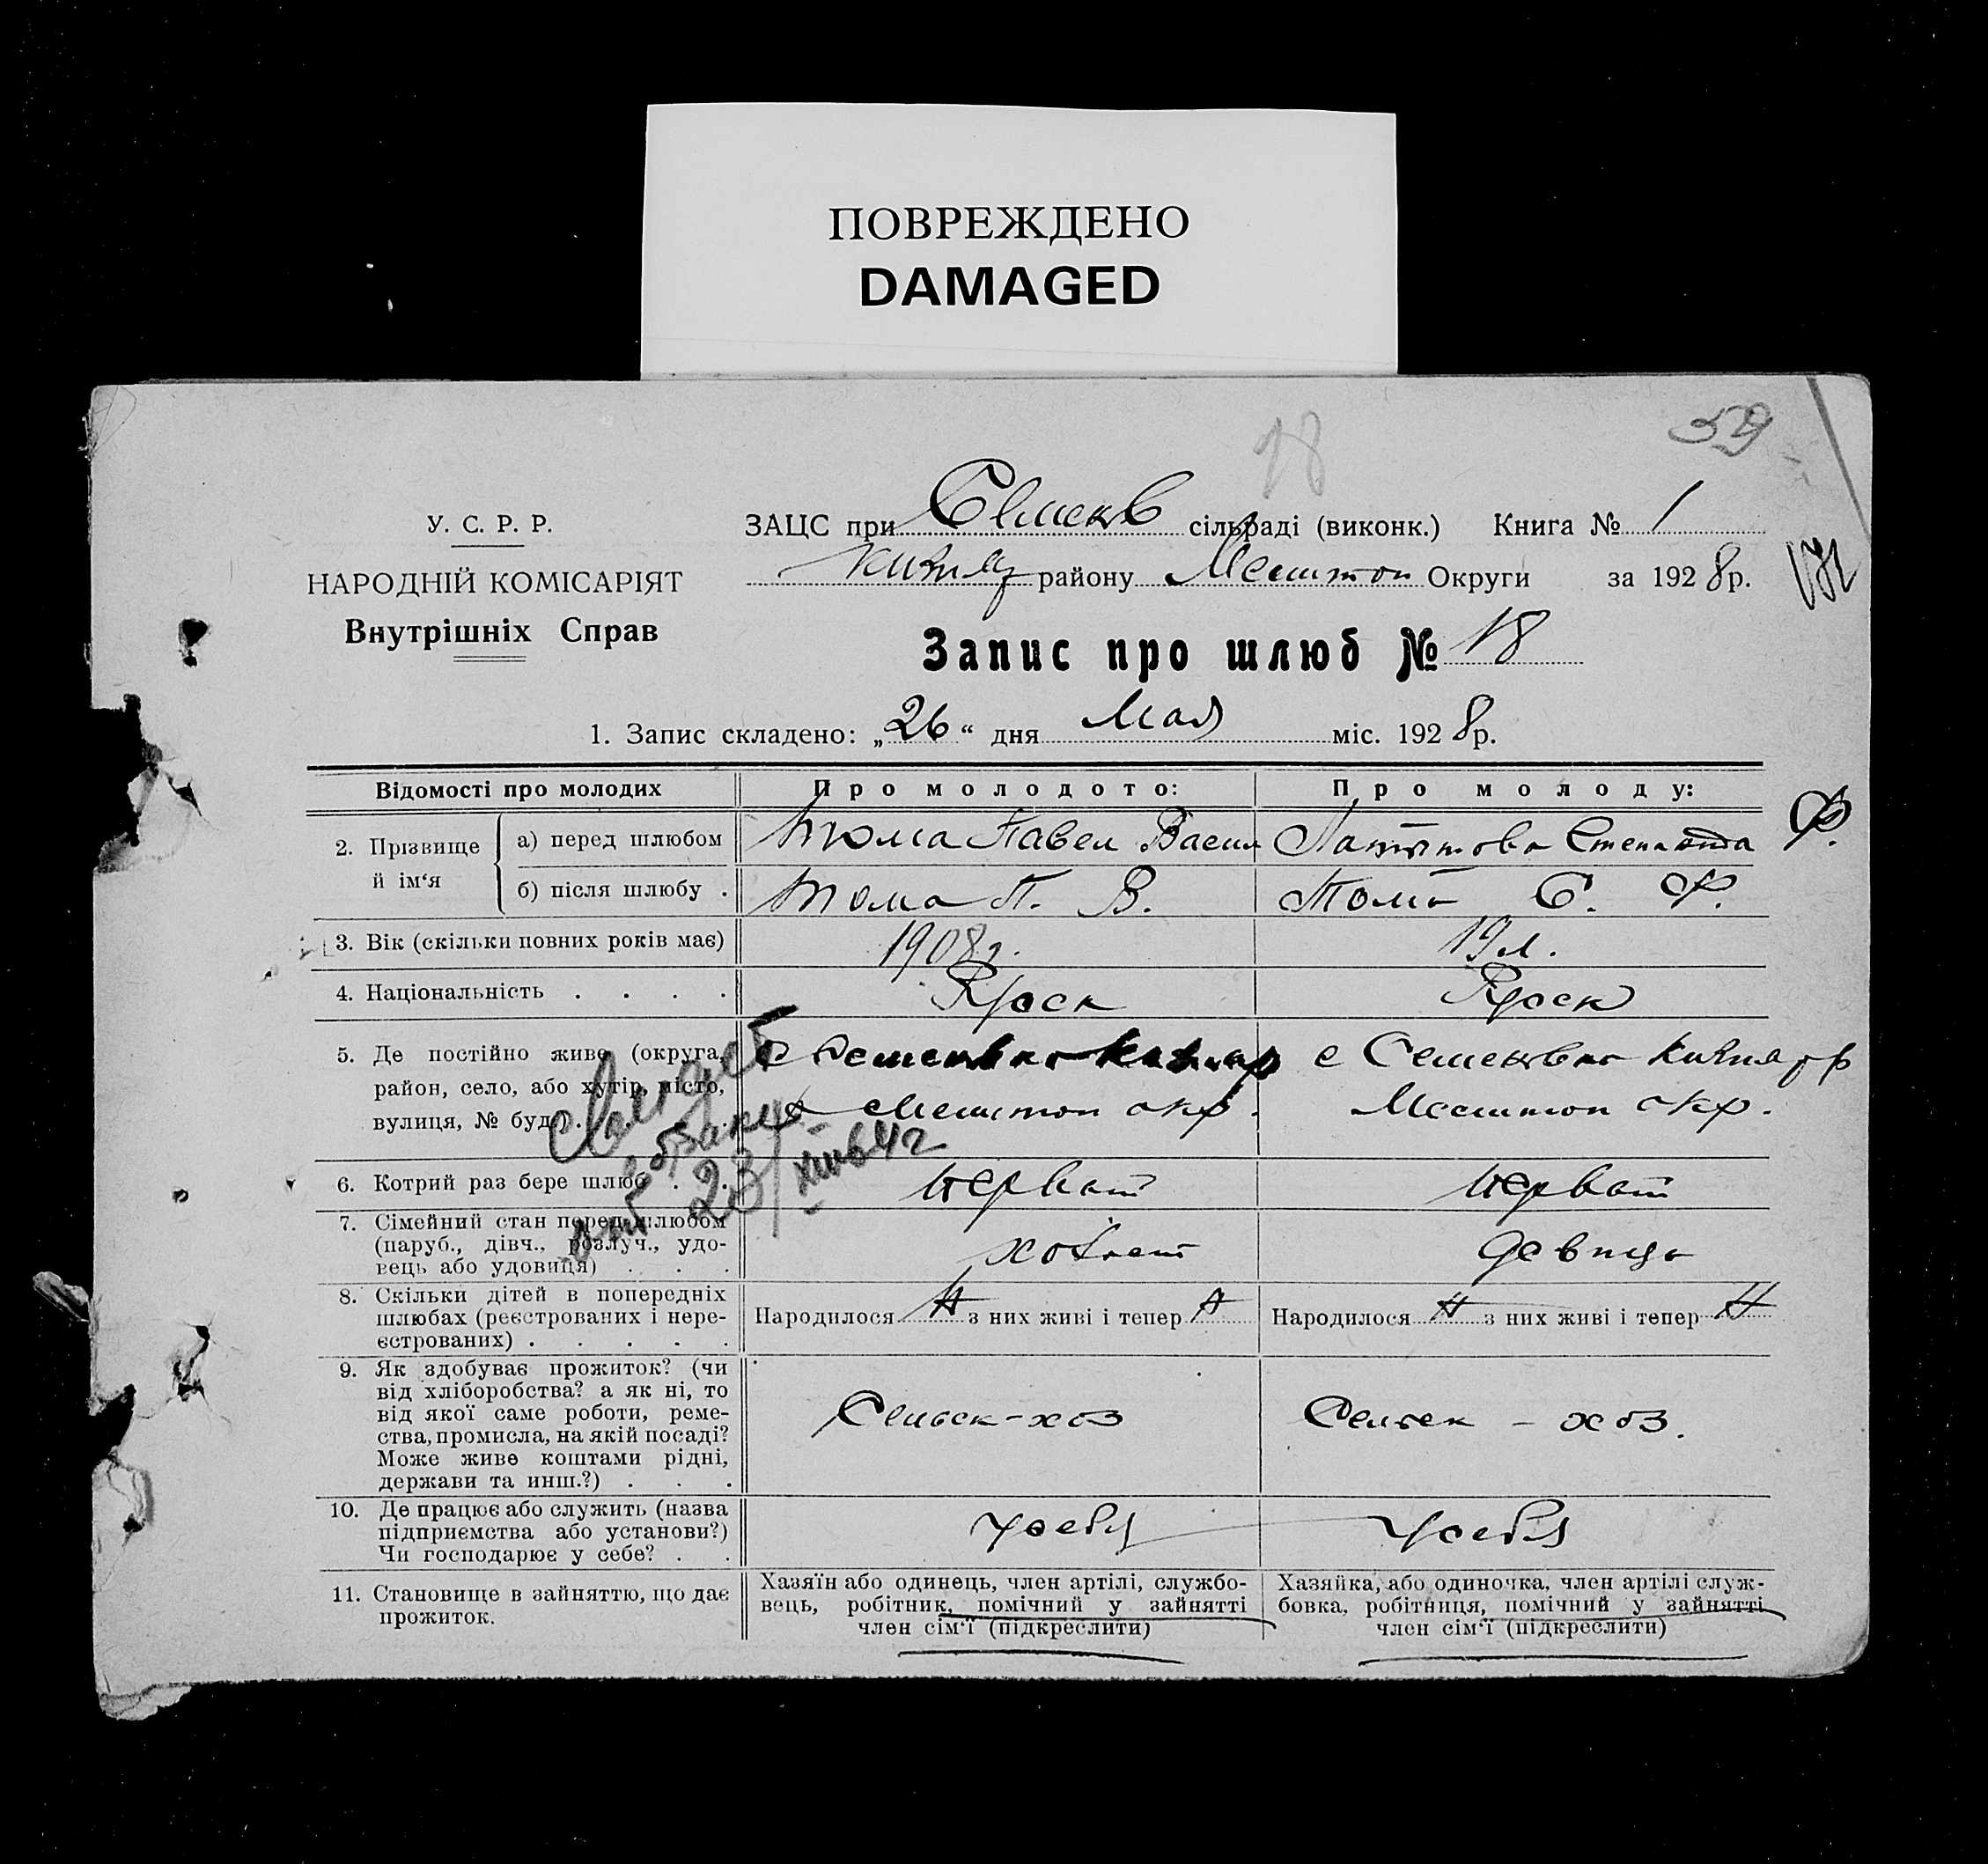 ПОВРЕЖДЕНО
DAMAGED
59
18
У. С. Р. Р.
НАРОДНІЙ КОМІСАРІЯТ
Внутрішніх Справ
ЗАЦС при Семенов сільраді (виконк.) Книга № 1
району Мелитоп Округи за 1928 р.
Запис про шлюб № 18
1. Запис складено: „26“ дня Мая міс. 1928 р.
Відомості про молодих Про молодого: Про молоду:
2. Прізвище й ім‘я
а) перед шлюбом Тома Павел Васил Степанида Ф.
б) після шлюбу . Тома П. В. Тома С. Ф.
3. Вік (скільки повних років має) 1908 г. 19 л.
4. Національність . . . . Русск Русск
5. Де постійно живе (округа, с Семеновка с Семеновка
район, село, або хутір, місто, Мелитоп окр. Мелитоп окр.
вулиця, № буд.) .
6. Котрий раз бере шлюб . . Первый Первый
7. Сімейний стан перед шлюбом
(паруб., дівч., розлуч., удо- холост девица
вець або удовиця) . . .
8. Скільки дітей в попередніх
шлюбах (реєстрованих і нере- Народилося з них живі і тепер Народилося з них живі і тепер
єстрованих) . . . . .
9. Як здобуває прожиток? (чи
від хліборобства? а як ні, то
від якої саме роботи, реме- Сельск-хоз Сельск - хоз.
ства, промисла, на якій посаді?
Може живе коштами рідні,
держави та инш.?) . . .
10. Де працює або служить (назва
підприємства або установи?) у себя у себя
Чи господарює у себе? . .
11. Становище в зайняттю, що дає
прожиток.
Хазяїн або одинець, член артілі, службо-
вець, робітник, помічний у зайнятті
член сім‘ї (підкреслити)
Хазяйка, або одиночка, член артілі служ-
бовка, робітниця, помічний у зайнятті
член сім‘ї (підкреслити)